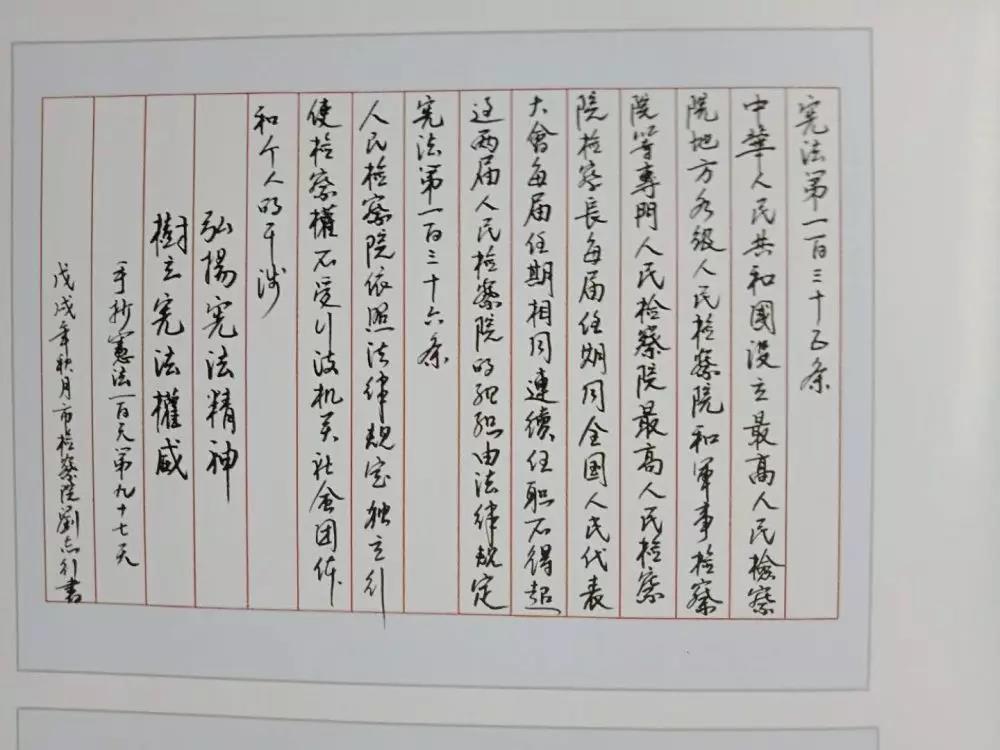 宪法第一百三十五条
中華人民共和國设立最高人民檢察
院地方各级人民检察院和军事检察
院等專門人民检察院最高人民检察
院检察長每届任期同全国人民代表
大會每届任期相同連續任职不得超
过两届人民检察院的组织由法律规定
宪法第一百三十六条
人民检察院依照法律规定独立行
使检察權不受行政机关社会团体
和个人的干涉
弘揚宪法精神
樹立宪法權威
手抄憲法一百天第九十七天
戊戌年秋月市检察院劉志行書